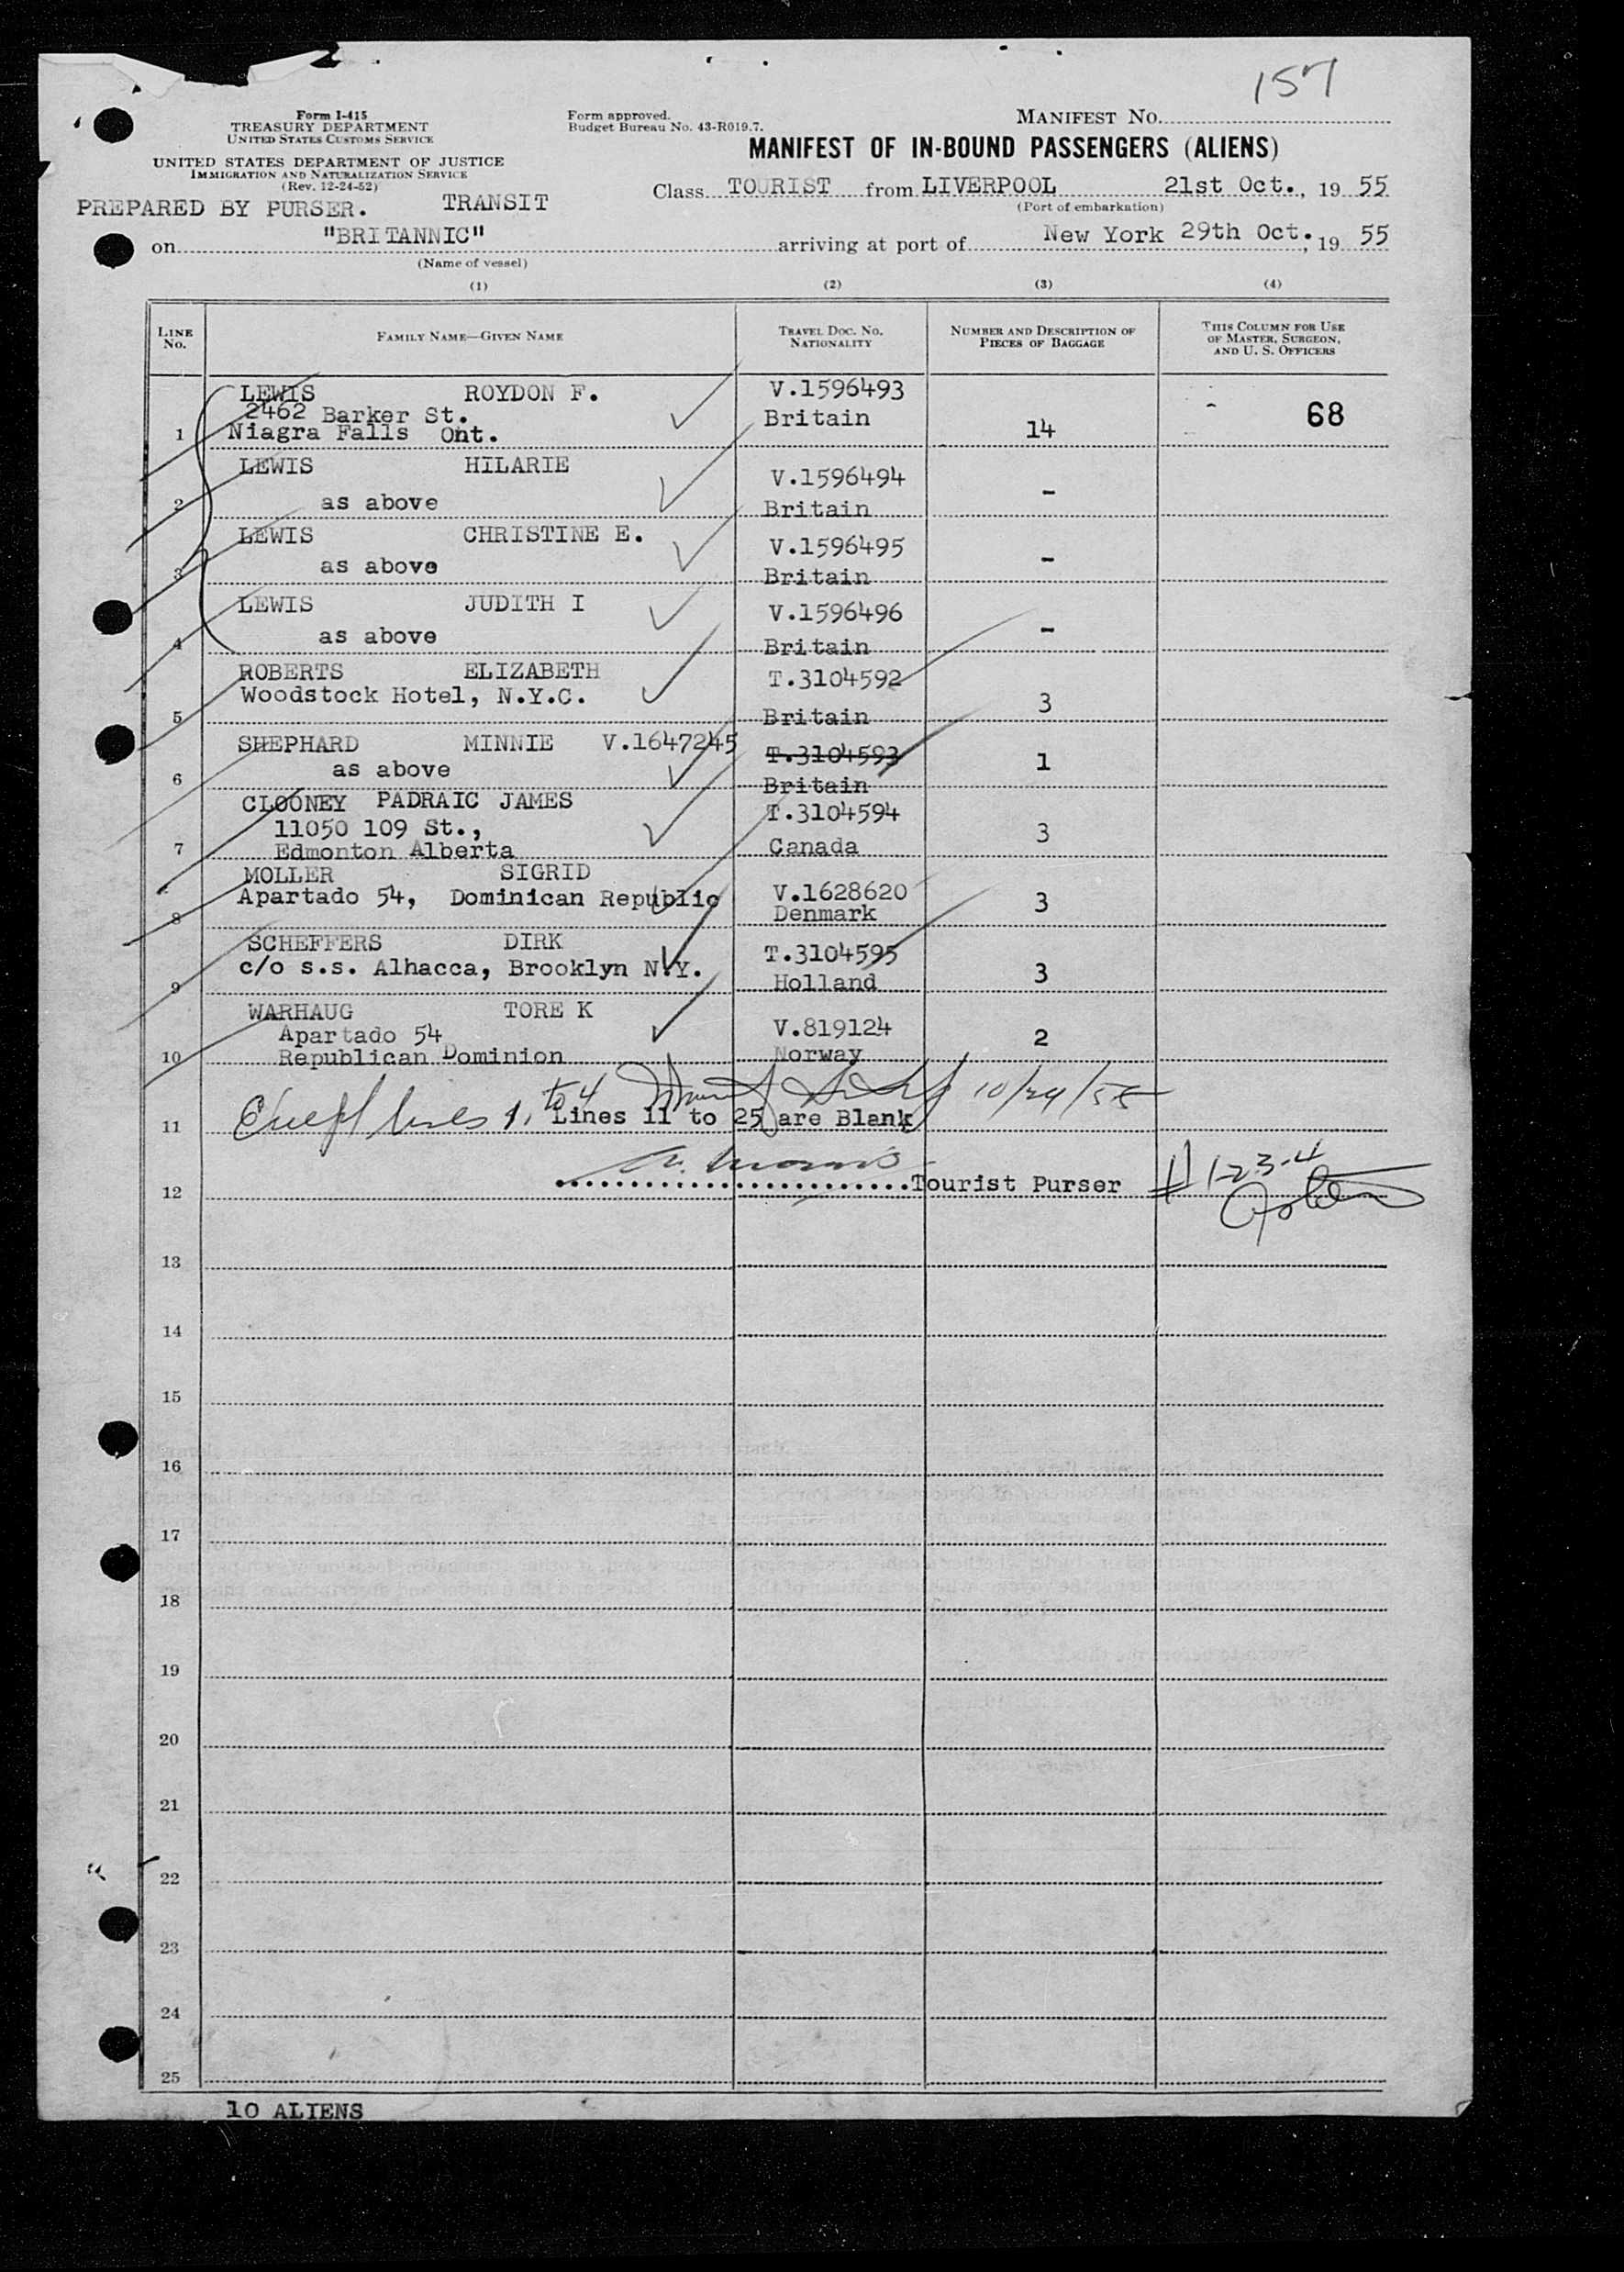 157
Form I-415
TREASURY DEPARTMENT
UNITED STATES CUSTOMS SERVICE
UNITED STATES DEPARTMENT OF JUSTICE
IMMIGRATION AND NATURALIZATION SERVICE
(Rev. 12-24-52)
Form approved.
Budget Bureau No. 43-R019.7.
MANIFEST No.
MANIFEST OF IN-BOUND PASSENGERS (ALIENS)
PREPARED BY PURSER. TRANSIT
Class TOURIST from LIVERPOOL 21st Oct., 19 55
(Port of embarkation)
on "BRITANNIC" arriving at port of New York 29th Oct., 19 55
(Name of vessel)
(1) (2) (3) (4)
LINE No. FAMILY NAME—GIVEN NAME TRAVEL DOC. NO. NATIONALITY NUMBER AND DESCRIPTION OF PIECES OF BAGGAGE THIS COLUMN FOR USE OF MASTER, SURGEON, AND U. S. OFFICERS
LEWIS ROYDON F. V.1596493
2462 Barker St. Britain 68
1 Niagra Falls Ont. 14
LEWIS HILARIE V.1596494
2 as above Britain -
LEWIS CHRISTINE E. V.1596495
3 as above Britain -
LEWIS JUDITH I V.1596496
4 as above Britain -
ROBERTS ELIZABETH T.3104592
Woodstock Hotel, N.Y.C.
5 Britain 3
SHEPHARD MINNIE V.1647245 T.3104593
6 as above Britain 1
CLOONEY PADRAIC JAMES T.3104594
11050 109 St.,
7 Edmonton Alberta Canada 3
MOLLER SIGRID V.1628620
8 Apartado 54, Dominican Republic Denmark 3
SCHEFFERS DIRK T.3104595
9 c/o s.s. Alhacca, Brooklyn N.Y. Holland 3
WARHAUG TORE K V.819124
Apartado 54 2
10 Republican Dominion Norway
Except lines 1, to 4 10/29/55
11 Lines 11 to 25 are Blank
12 Tourist Purser # 1-2-3-4
13
14
15
16
17
18
19
20
21
22
23
24
25
10 ALIENS